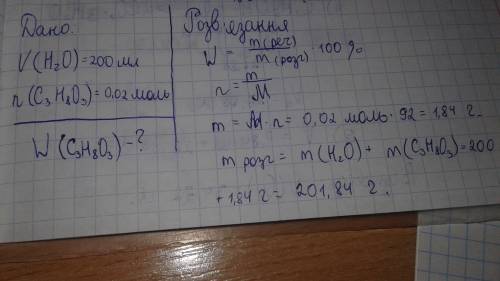 Дано:
V(H₂O)=200 мл
n(C₃H₈O₃)=0,02 моль
W(C₃H₈O₃)-?
Розв'язання
W = m(реч)/m(розг) · 100 %
n = m/M
m = M·n = 0,02 моль · 92 = 1,84 г.
m розг = m(H₂O) + m(C₃H₈O₃) = 200
+ 1,84 г = 201,84 г.